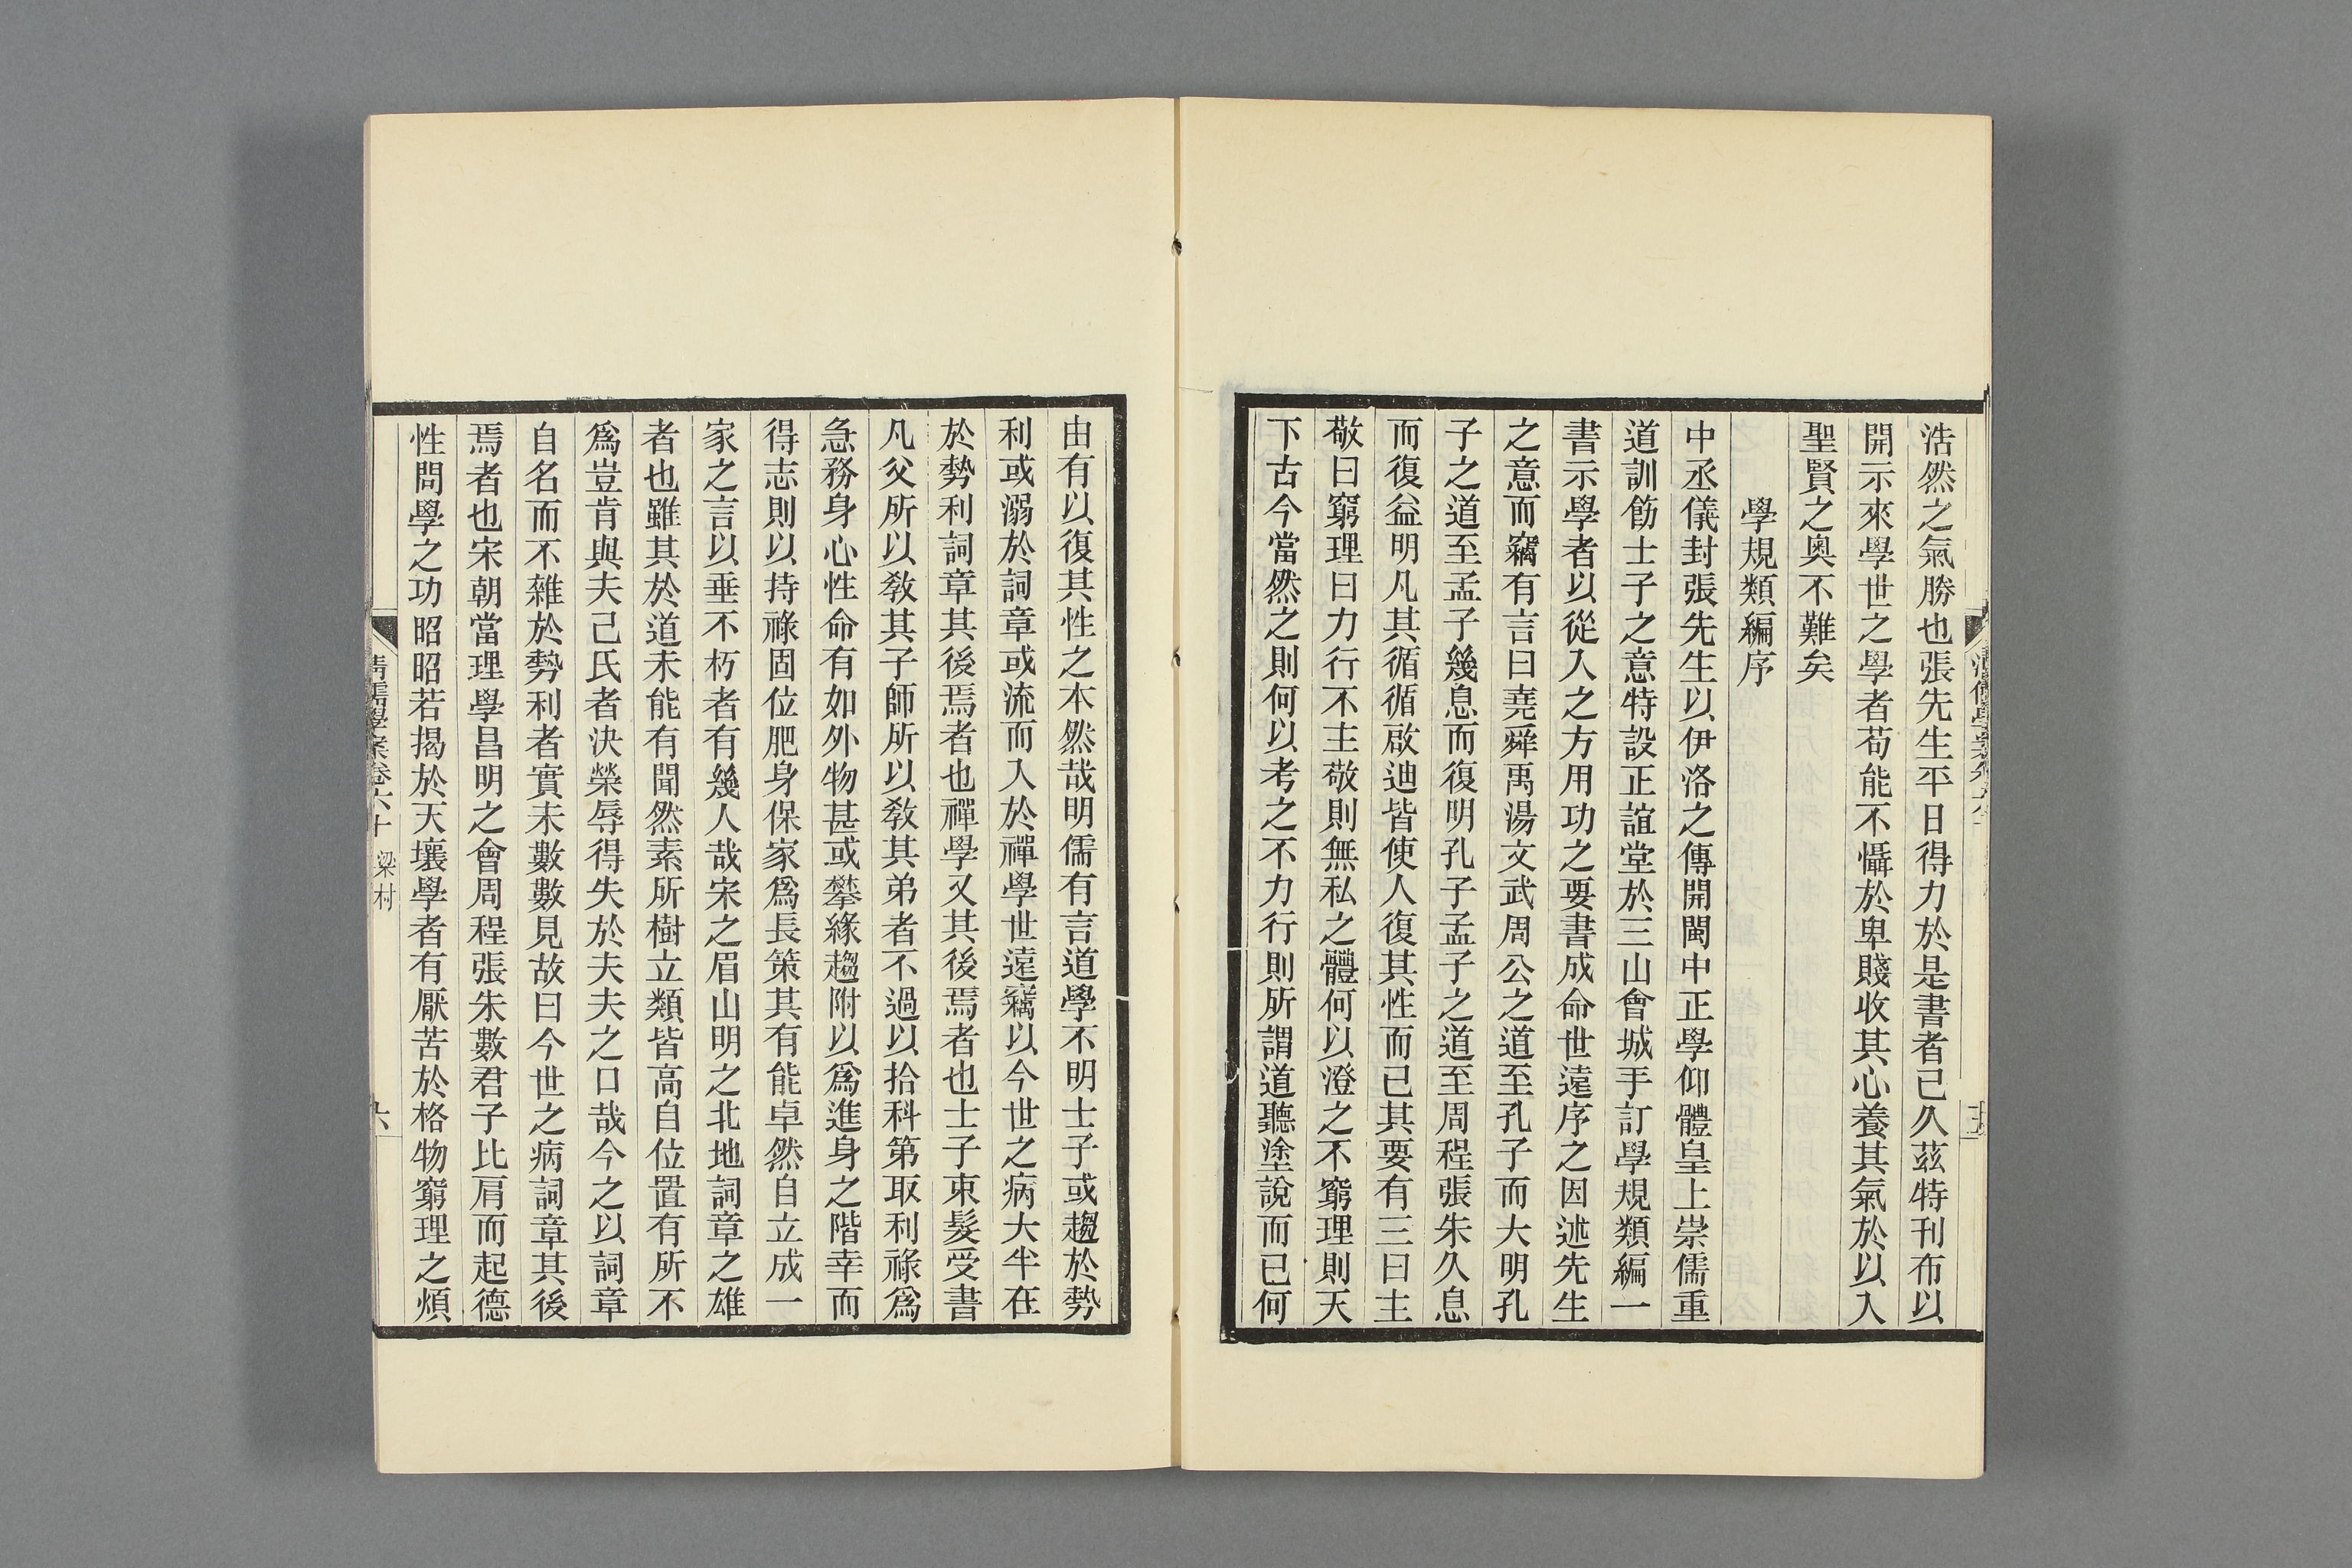 浩然之氣勝也張先生平日得力於是書者已久茲特刊布以
開示來學世之學者苟能不懾於卑賤收其心養其氣於以入
聖賢之奧不難矣
學規類編序
中丞儀封張先生以伊洛之傳開閩中正學仰體皇上崇儒重
道訓飭士子之意特設正誼堂於三山會城手訂學規類編一
書示學者以從入之方用功之要書成命世遠序之因述先生
之意而竊有言曰堯舜禹湯文武周公之道至孔子而大明孔
子之道至孟子幾息而復明孔子孟子之道至周程張朱久息
而復益明凡其循循啟迪皆使人復其性而已其要有三曰主
敬曰窮理曰力行不主敬則無私之體何以澄之不窮理則天
下古今當然之則何以考之不力行則所謂道聽塗說而已何
由有以復其性之本然哉明儒有言道學不明士子或趨於勢
利或溺於詞章或流而入於禪學世遠竊以今世之病大半在
於勢利詞章其後焉者也禪學又其後焉者也士子束髮受書
凡父所以教其子師所以教其弟者不過以拾科第取利祿爲
急務身心性命有如外物甚或攀緣趨附以爲進身之階幸而
得志則以持祿固位肥身保家爲長策其有能卓然自立成一
家之言以垂不朽者有幾人哉宋之眉山明之北地詞章之雄
者也雖其於道未能有聞然素所樹立類皆高自位置有所不
爲豈肯與夫己氏者決榮辱得失於夫夫之口哉今之以詞章
自名而不雜於勢利者實未數數見故曰今世之病詞章其後
焉者也宋朝當理學昌明之會周程張朱數君子比肩而起德
性問學之功昭昭若揭於天壤學者有厭苦於格物窮理之煩
清儒學案卷六十 梁村
六